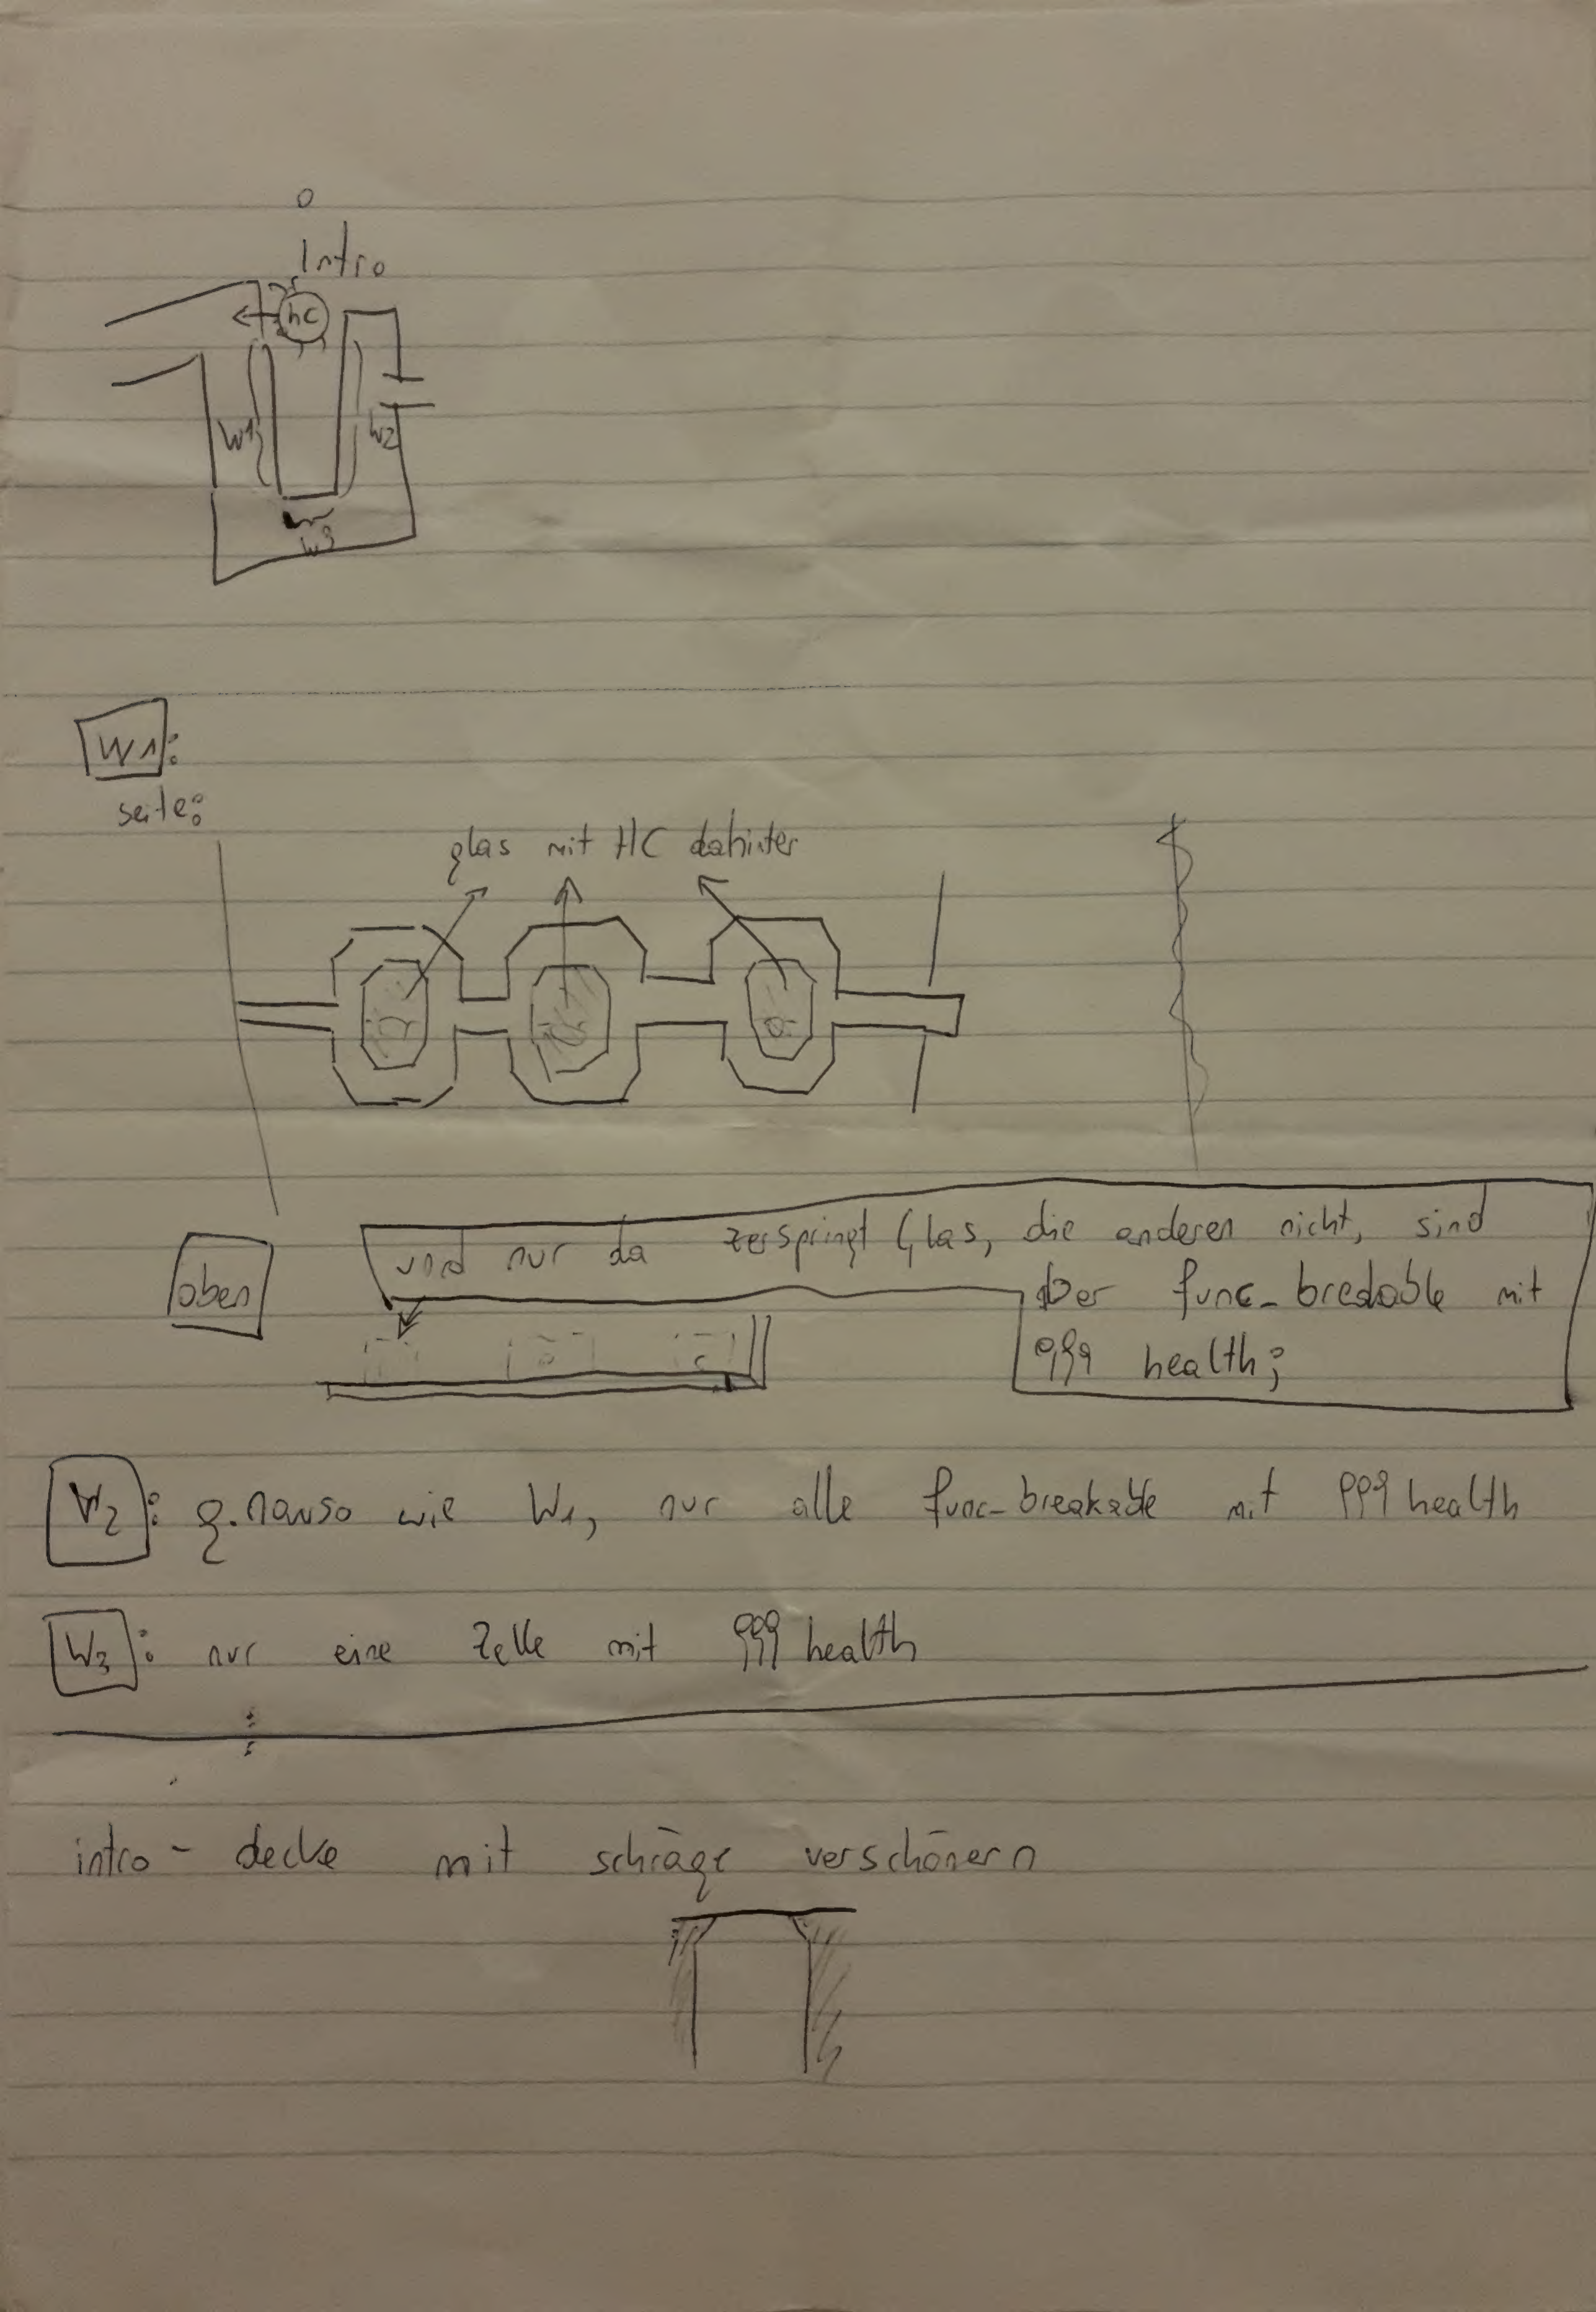 Intro
hc
W1
W2
W3
W1:
seite:
glas mit HC dahinter
oben
und nur da zerspringt Glas, die anderen nicht, sind
aber func_breakable mit
999 health;
W2: genauso wie W1, nur alle func_breakable mit 999 health
W3: nur eine Zelle mit 999 health
intro - decke mit schräge verschönern